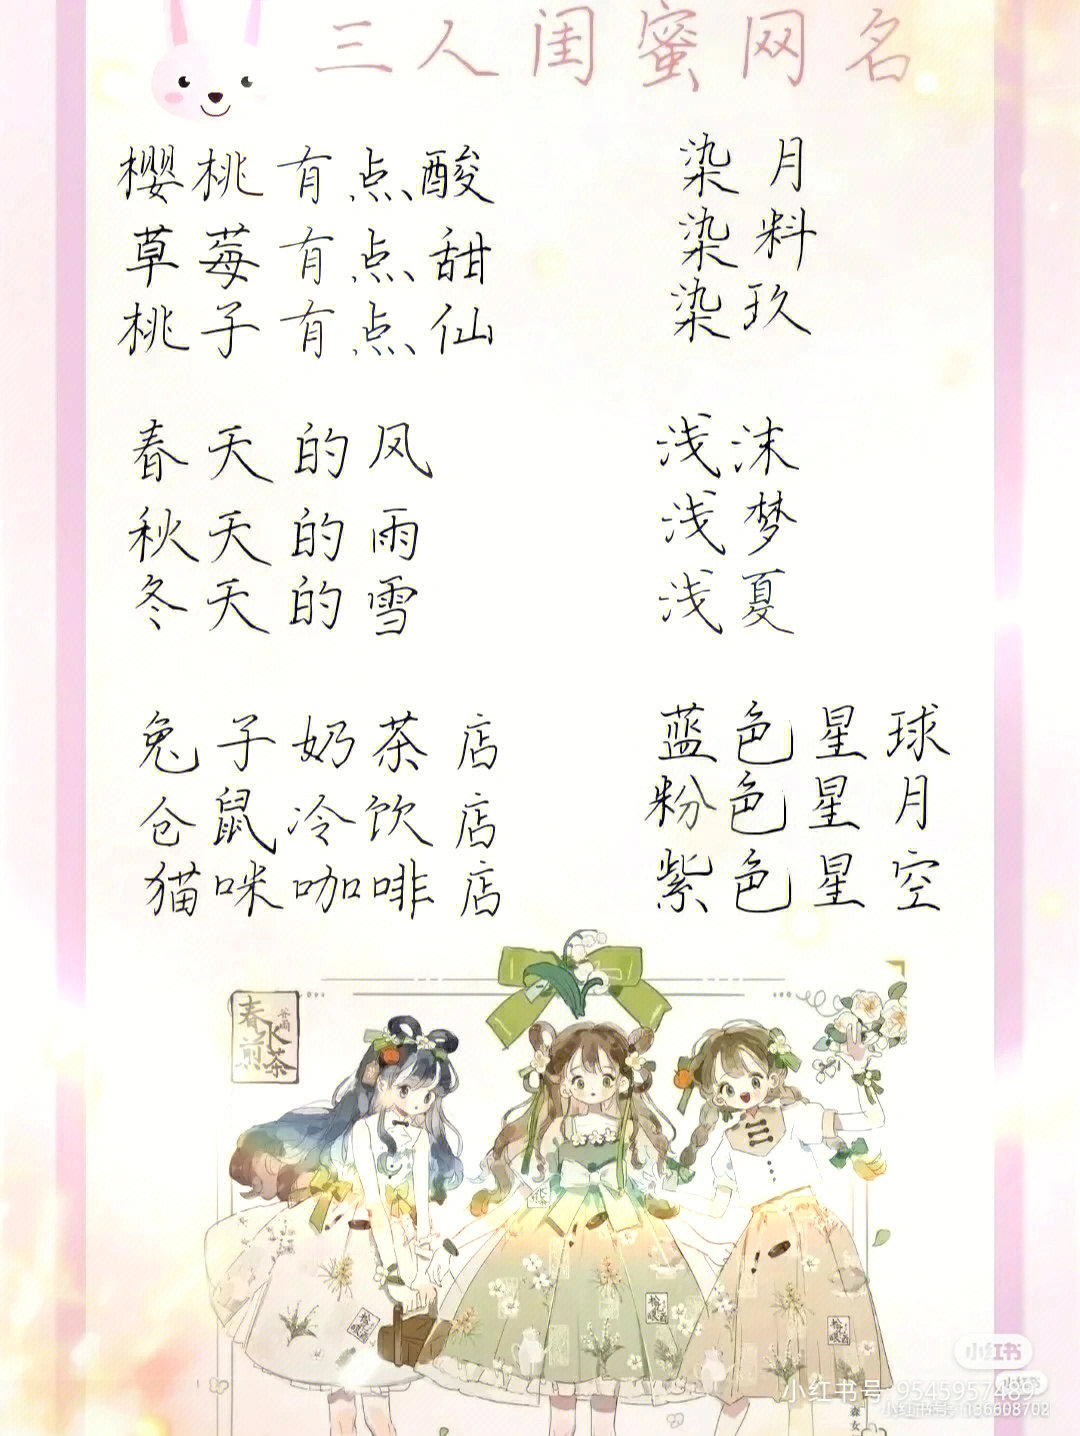 三人闺蜜网名
樱桃有点酸
草莓有点甜
桃子有点仙
染月
染料
染玖
春天的风
秋天的雨
冬天的雪
浅沫
浅梦
浅夏
兔子奶茶店
仓鼠冷饮店
猫咪咖啡店
蓝色星球
粉色星月
紫色星空
春水煎茶
谷雨
小红书
小红书
小红书号 9545957489
小红书号: 136608702
森女